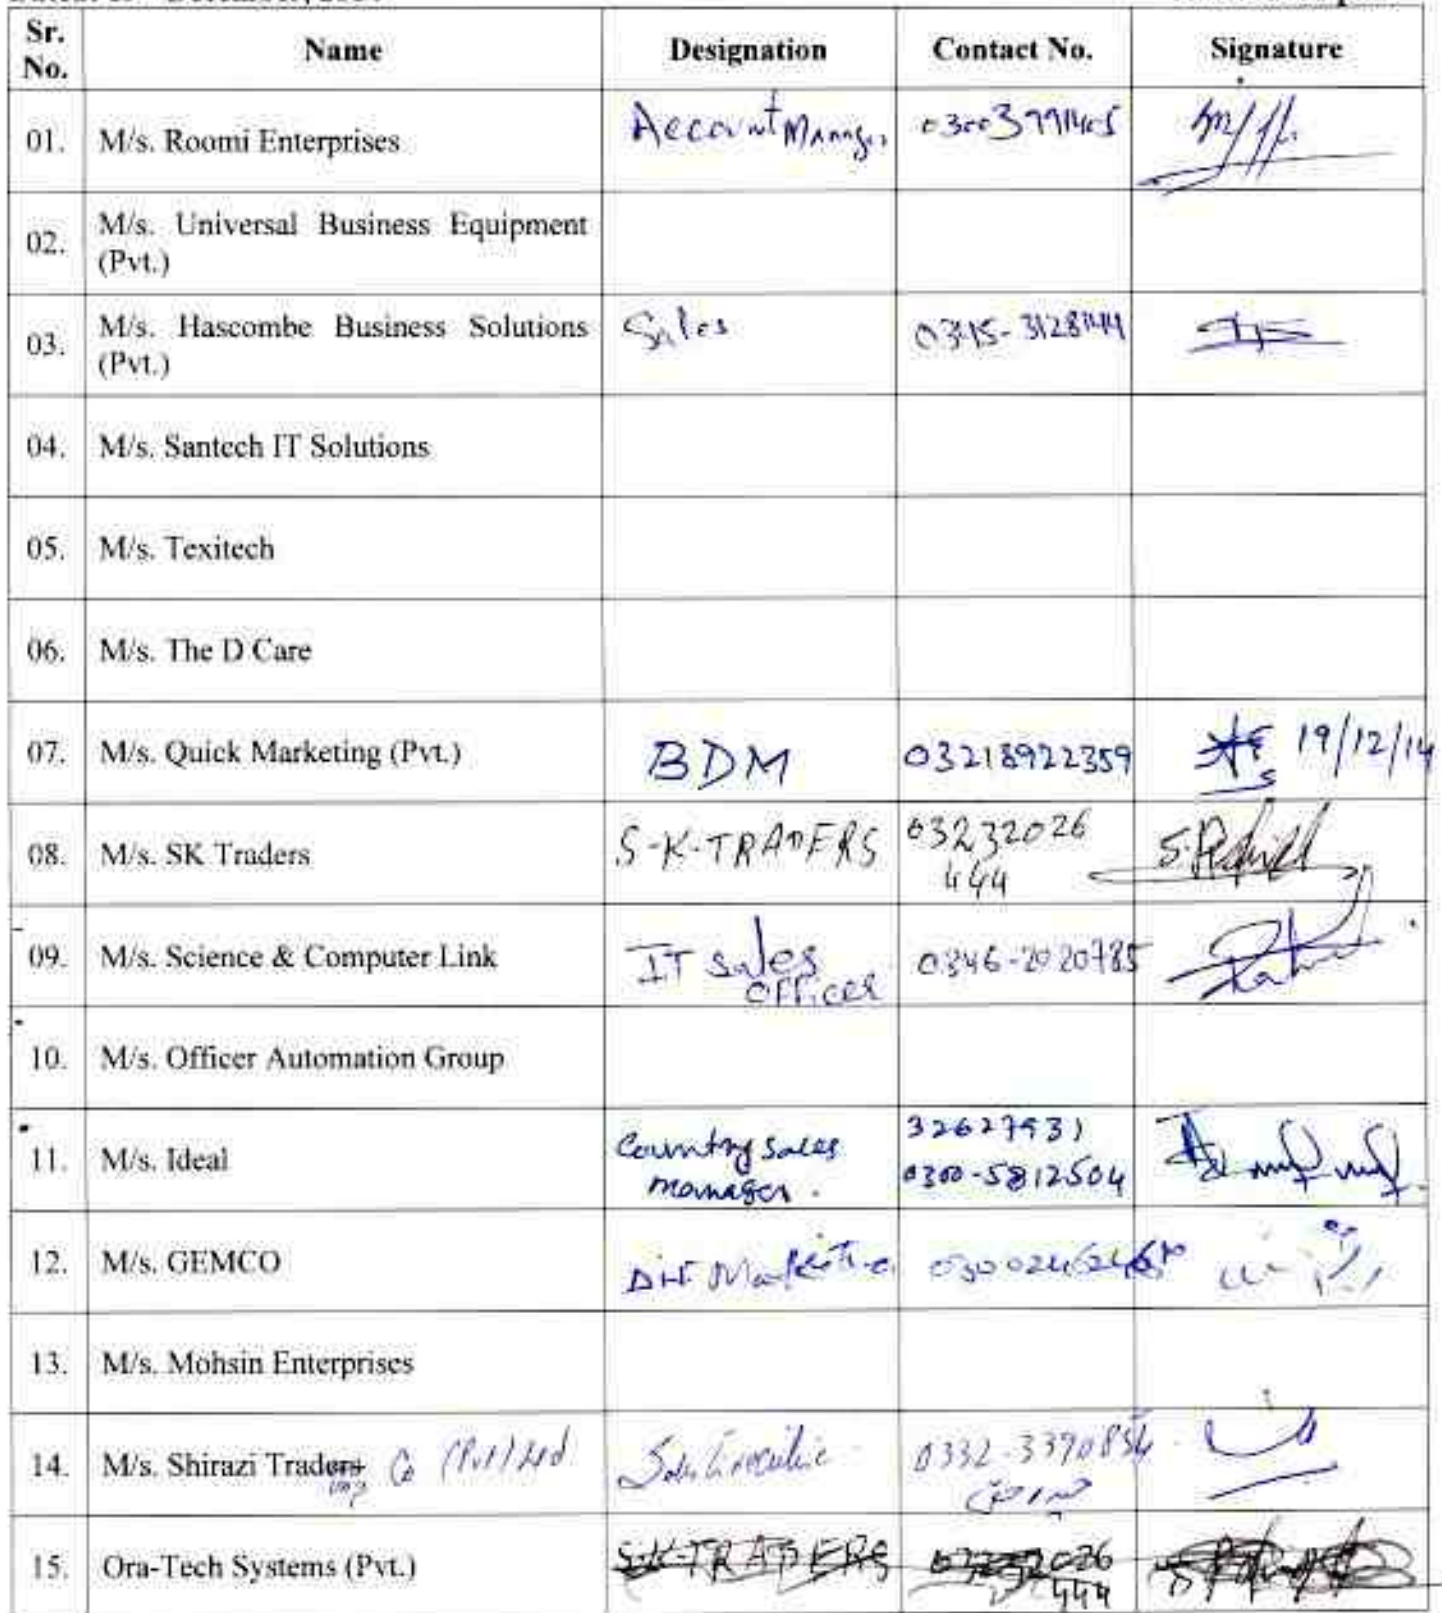 Sr. No. Name Designation Contact No. Signature
01. M/s. Roomi Enterprises Account Manager
02. M/s. Universal Business Equipment
(Pvt.)
03. M/s. Hascombe Business Solutions Sales
(Pvt.)
04. M/s. Santech IT Solutions
05. M/s. Texitech
06. M/s. The D Care
07. M/s. Quick Marketing (Pvt.) BDM 03218922359 19/12/14
08. M/s. SK Traders S-K-TRADERS 03232026
444
09. M/s. Science & Computer Link IT sales 0346-2020785
officer
10. M/s. Officer Automation Group
11. M/s. Ideal Country Sales 32627931
manager. 0300-5812504
12. M/s. GEMCO
13. M/s. Mohsin Enterprises
14. M/s. Shirazi Traders Co (Pvt) Ltd 0332-3390834
15. Ora-Tech Systems (Pvt.) S-K-TRADERS 03232026
444